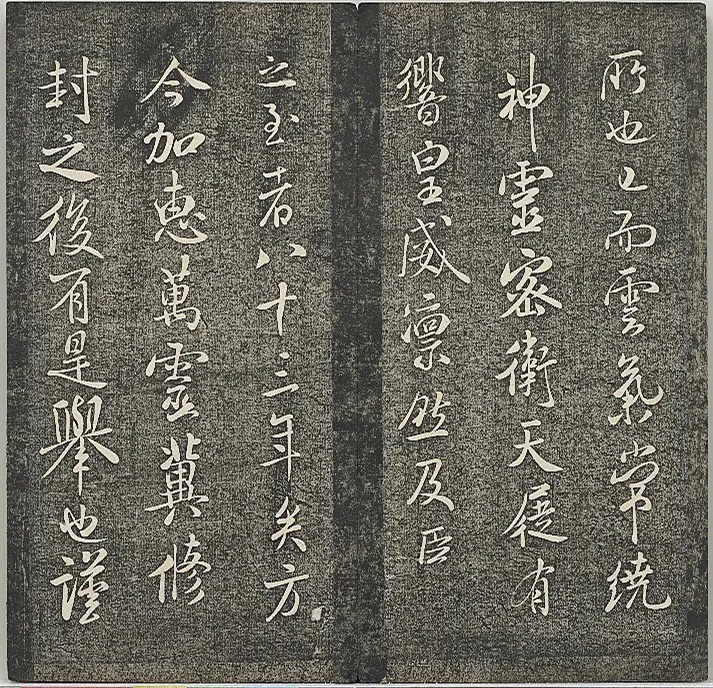 所也已而雲氣常繞
神靈密衛天有
響皇威凛然及臣
之至者八十三年矣方
今加惠萬靈冀修
封之後有是舉也謹